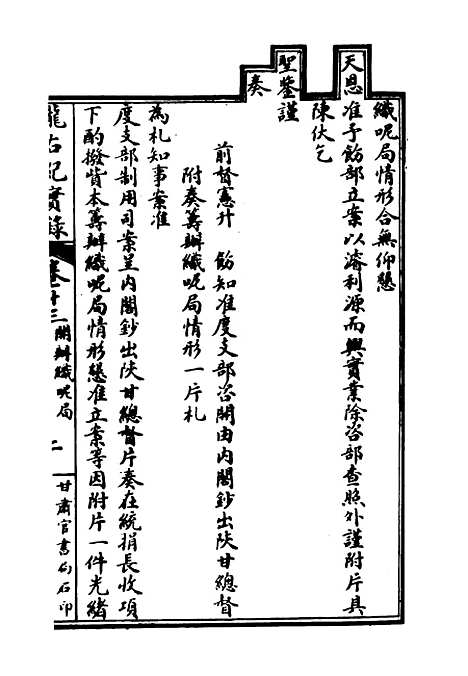 織呢局情形合無仰懇
天恩准予飭部立案以濬利源而興實業除咨部查照外謹附片具
陳伏乞
聖鑒謹
奏
前督憲升　飭知准度支部咨開由內閣鈔出陝甘總督
附奏籌辦織呢局情形一片札
為札知事案准
度支部制用司案呈內閣鈔出陝甘總督片奏在統捐長收項
下酌撥貲本籌辦織呢局情形懇准立案等因附片一件光緒
隴右紀實錄　卷十三　開辦織呢局　二　甘肅官書局石印